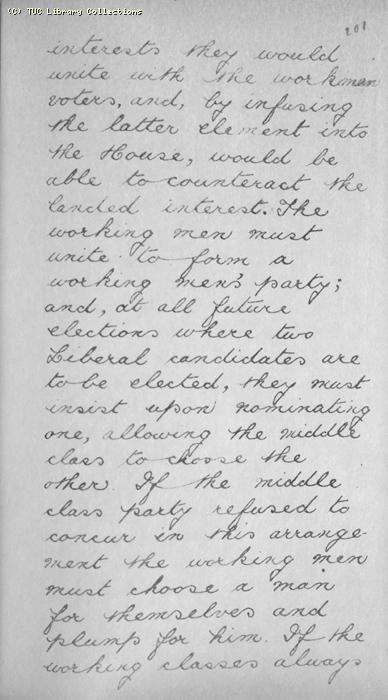 (C) TUC Library Collections
201
interests they would
unite with the workman
voters, and, by infusing
the latter element into
the House, would be
able to counteract the
landed interest. The
working men must
unite to form a
working men's party;
and, at all future
elections where two
Liberal candidates are
to be elected, they must
insist upon nominating
one, allowing the middle
class to choose the
other. If the middle
class party refused to
concur in this arrange-
ment the working men
must choose a man
for themselves and
plump for him. If the
working classes always